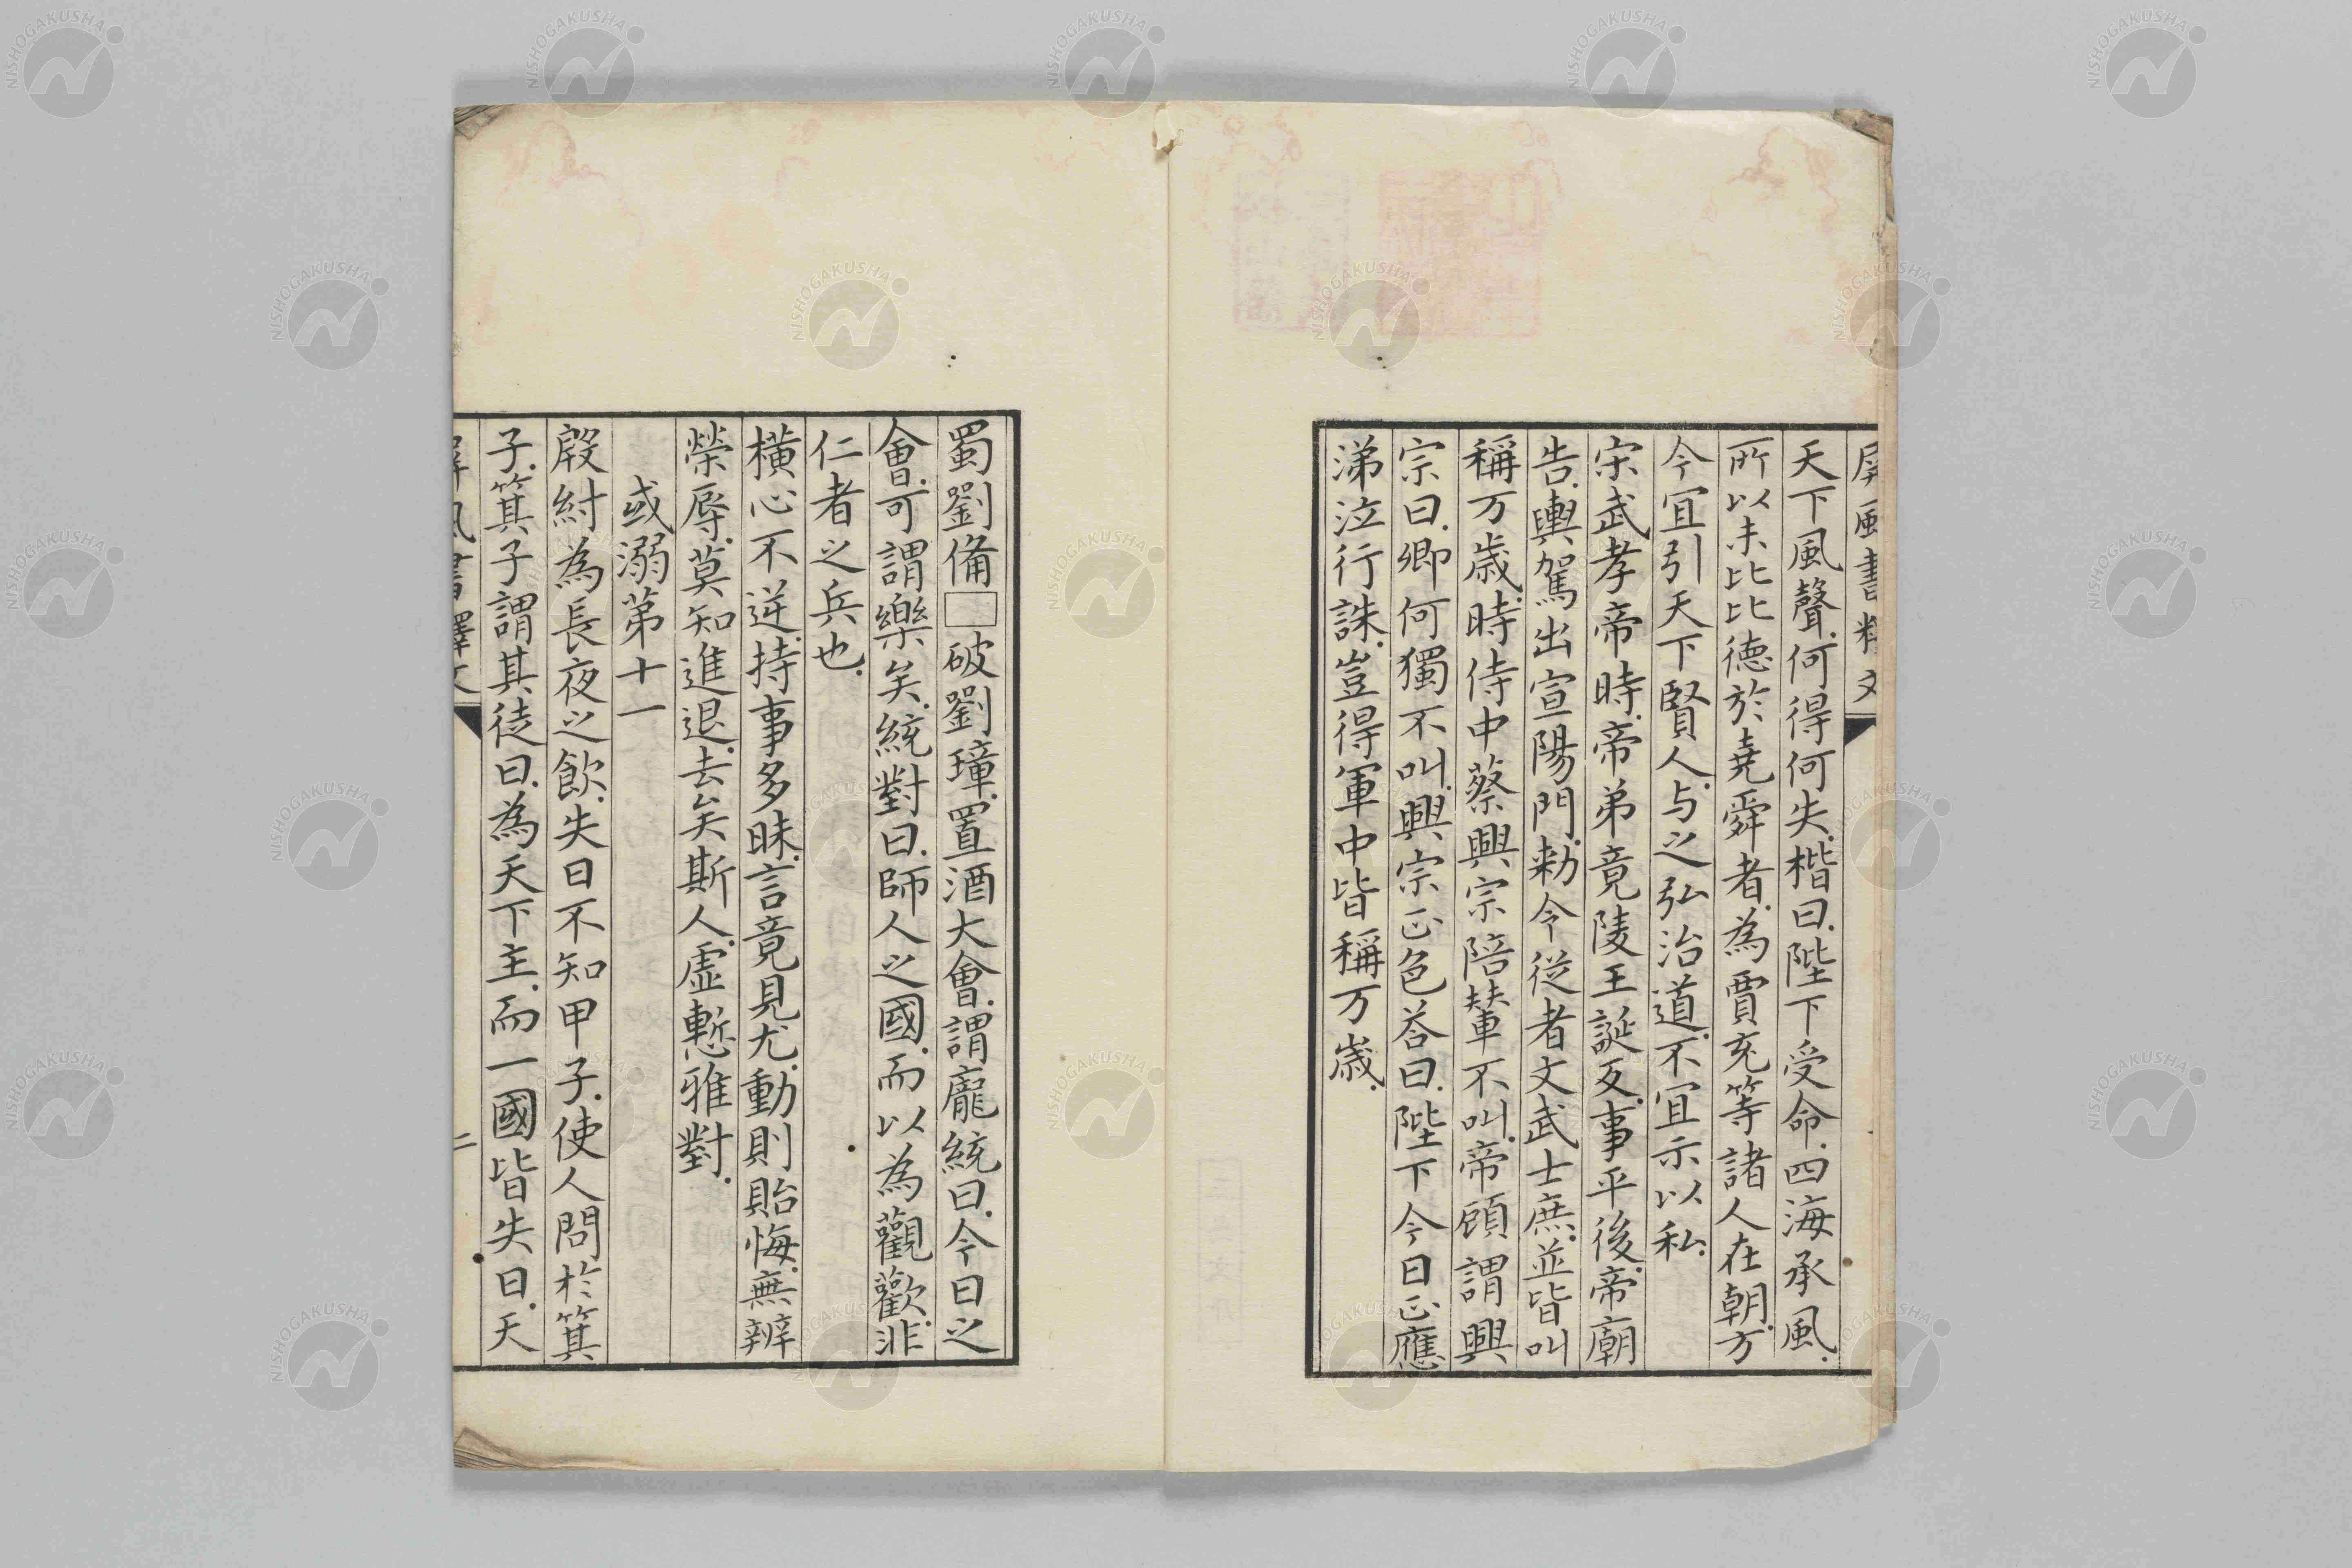 屏風書釋文
天下風聲.何得何失.楷曰.陛下受命.四海承風.
所以未比比德於堯舜者.為賈充等諸人在朝.方
今宜引天下賢人.与之弘治道.不宜示以私.
宋武孝帝時.帝弟竟陵王誕反.事平後.帝廟
告.輿駕出宣陽門.勅令從者文武士庶.並皆叫
稱万歲.時侍中蔡興宗陪輦不叫.帝顧謂興
宗曰.卿何獨不叫.興宗正色荅曰.陛下今日正應
涕泣行誅.豈得軍中皆稱万歲.
蜀劉備□破劉璋.置酒大會.謂龐統曰.今日之
會.可謂樂矣.統對曰.師人之國.而以為觀歡.非
仁者之兵也.
橫心不逆.持事多昧.言竟見尤.動則貽悔.無辨
榮辱.莫知進退.去矣斯人.虛慙雅對.
或溺第十一
殷紂為長夜之飲.失日不知甲子.使人問於箕
子.箕子謂其徒曰.為天下主.而一國皆失日.天
屏風書釋文
二
NISHOGAKUSHA